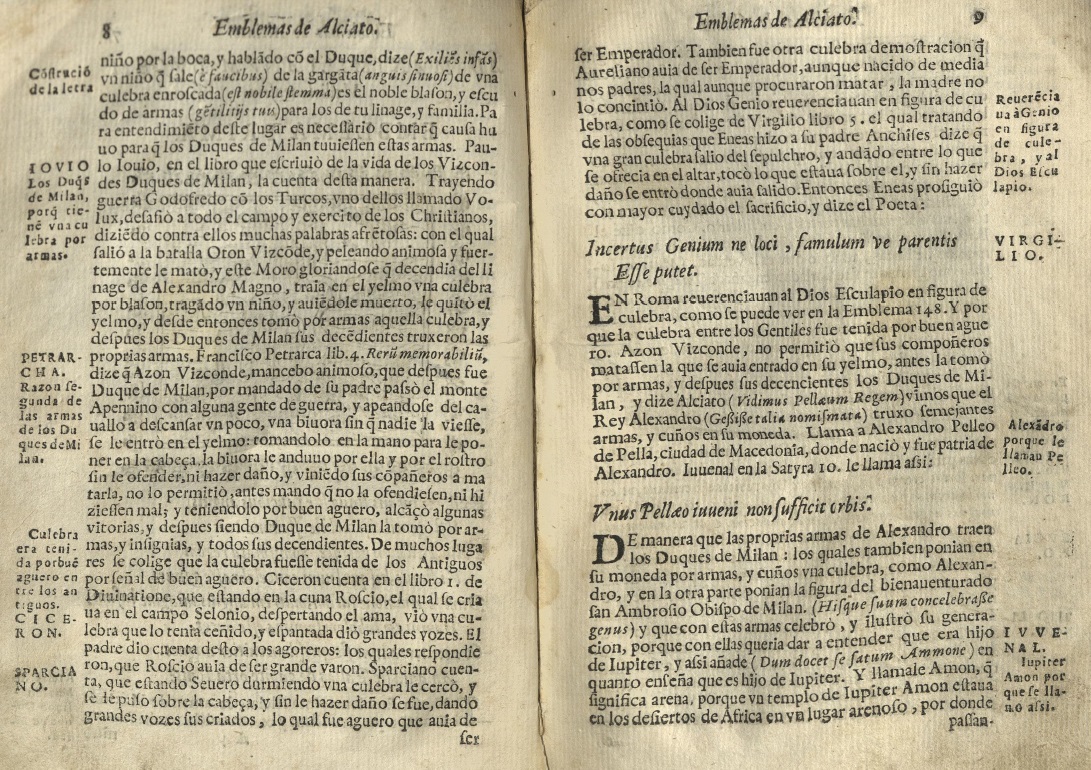 8
Emblemas de Alciato.
niño por la boca, y hablãdo cõ el Duque, dize (Exiliẽs infãs)
vn niño q̃ sale (è faucibus) de la gargãta (anguis sinuosi) de vna
culebra enroscada (est nobile stemma) es el noble blason, y escu
do de armas (gẽtilitijs tuis) para los de tu linage, y familia. Pa
ra entendimiẽto deste lugar es necessario contar q̃ causa hu
uo paraq̃ los Duques de Milan tuuiessen estas armas. Pau-
lo Iouio, en el libro que escriuiò de la vida de los Vizcon-
des Duques de Milan, la cuenta desta manera. Trayendo
guerra Godofredo cõ los Turcos, vno dellos llamado Vo-
lux, desafiò a todo el campo y exercito de los Christianos,
diziẽdo contra ellos muchas palabras afrẽtosas: con el qual
saliò a la batalla Oton Vizcõde, y peleando animosa y fuer-
temente le matò, y este Moro gloriandose q̃ decendia del li
nage de Alexandro Magno, traia en el yelmo vna culebra
por blason, tragãdo vn niño, y auiẽdole muerto, le quitò el
yelmo, y desde entonces tomò por armas aquella culebra, y
despues los Duques de Milan sus decẽdientes truxeron las
proprias armas. Francisco Petrarca lib. 4. Rerũ memorabiliũ,
dize q̃ Azon Vizconde, mancebo animoso, que despues fue
Duque de Milan, por mandado de su padre passò el monte
Apennino con alguna gente de guerra, y apeandose del ca-
uallo a descansar vn poco, vna biuora sin q̃ nadie la viesse,
se le entrò en el yelmo: tomandolo en la mano para le po-
ner en la cabeça, la biuora le anduuo por ella y por el rostro
sin le ofender, ni hazer daño, y viniẽdo sus cõpañeros a ma
tarla, no lo permitiò, antes mando q̃ no la ofendiesen, ni hi
ziessen mal; y teniendolo por buen aguero, alcãçò algunas
vitorias, y despues siendo Duque de Milan la tomò por ar-
mas, y insignias, y todos sus decendientes. De muchos luga
res se colige que la culebra fuesse tenida de los Antiguos
por señal de buen aguero. Ciceron cuenta en el libro 1. de
Diuinatione, que estando en la cuna Roscio, el qual se cria
ua en el campo Selonio, despertando el ama, viò vna cu-
lebra que lo tenia ceñido, y espantada diò grandes vozes. El
padre dio cuenta desto a los agoreros: los quales respondie
ron, que Roscio auia de ser grande varon. Sparciano cuen-
ta, que estando Seuero durmiendo vna culebra le cercò, y
se le puso sobre la cabeça, y sin le hazer daño se fue, dando
grandes vozes sus criados, lo qual fue aguero que auia de
ser
Cõstruciõ
de la letra
IOVIO
Los Duq̃s
de Milan,
porq̃ tie-
nẽ vna cu
lebra por
armas.
PETRAR-
CHA.
Razon se-
gunda de
las armas
de los Du
ques de Mi
lan.
Culebra
era teni-
da por buẽ
aguero en
tre los an
tiguos.
CICE-
RON.
SPARCIA
NO.
Emblemas de Alciato.
9
ser Emperador. Tambien fue otra culebra demostracion q̃
Aureliano auia de ser Emperador, aunque nacido de media
nos padres, la qual aunque procuraron matar, la madre no
lo concintiò. Al Dios Genio reuerenciauan en figura de cu
lebra, como se colige de Virgilio libro 5. el qual tratando
de las obsequias que Eneas hizo a su padre Anchises dize q̃
vna gran culebra salio del sepulchro, y andãdo entre lo que
se ofrecia en el altar, tocò lo que estaua sobre el, y sin hazer
daño se entrò donde auia salido. Entonces Eneas prosiguiò
con mayor cuydado el sacrificio, y dize el Poeta:
Incertus Genium ne loci, famulum ve parentis
Esse putet.
EN Roma reuerenciauan al Dios Esculapio en figura de
culebra, como se puede ver en la Emblema 148. Y por
que la culebra entre los Gentiles fue tenida por buen ague
ro. Azon Vizconde, no permitiò que sus compoñeros
matassen la que se auia entrado en su yelmo, antes la tomò
por armas, y despues sus decencientes los Duques de Mi-
lan, y dize Alciato (Vidimus Pellæum Regem) vimos que el
Rey Alexandro (Gessisse talia nomismata) truxo semejantes
armas, y cuños en su moneda. Llama a Alexandro Pelleo
de Pella, ciudad de Macedonia, donde naciò y fue patria de
Alexandro. Iuuenal en la Satyra 10. le llama assi:
Vnus Pellæo iuueni non sufficit orbis.
DE manera que las proprias armas de Alexandro traen
los Duques de Milan: los quales tambien ponian en
su moneda por armas, y cuños vna culebra, como Alexan-
dro, y en la otra parte ponian la figura del bienauenturado
san Ambrosio Obispo de Milan. (Hisque suum concelebrasse
genus) y que con estas armas celebrò, y ilustrò su genera-
cion, porque con ellas queria dar a entender que era hijo
de Iupiter, y assi añade (Dum docet se satum Ammone) en
quanto enseña que es hijo de Iupiter. Y llamale Amon, q̃
significa arena, porque vn templo de Iupiter Amon estaua
en los desiertos de Africa en vn lugar arenoso, por donde
passan-
Reuerẽcia
ua à Genio
en figura
de cule-
bra, y al
Dios Escu
lapio.
VIRGI-
LIO.
Alexãdro
porque le
llaman Pe
lleo.
IVVE-
NAL.
Iupiter
Amon por
que se lla-
mo assi.